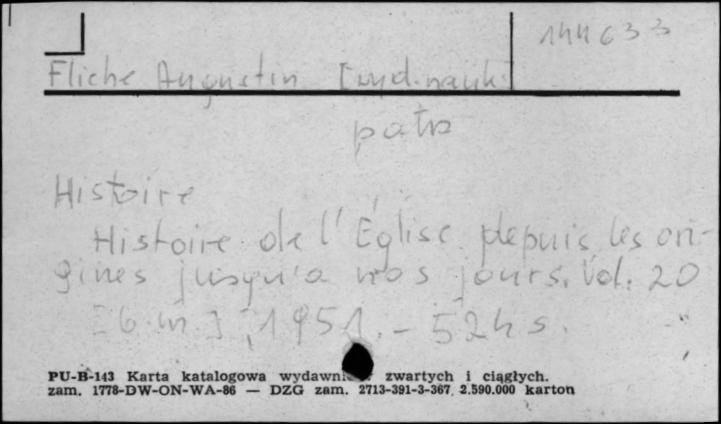 144633
Fliche Augustin [wyd. nauk.]
patrz
Histoire
Histoire de l'Église depuis les ori-
gines jusqu'a nos jours. Vol. 20
[b.m.], 1951. - 524 s.
PU-B-143 Karta katalogowa wydawni zwartych i ciągłych.
zam. 1778-DW-ON-WA-86 — DZG zam. 2713-391-3-367. 2.590.000 karton